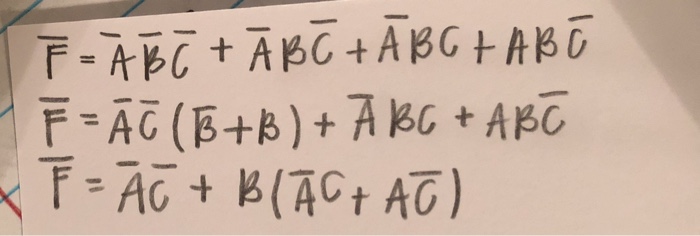 F̅ = A̅ B̅ C̅ + A̅ B C̅ + A̅ B C + A B C̅
F̅ = A̅ C̅ (B̅ + B) + A̅ B C + A B C̅
F̅ = A̅ C̅ + B (A̅ C + A C̅)